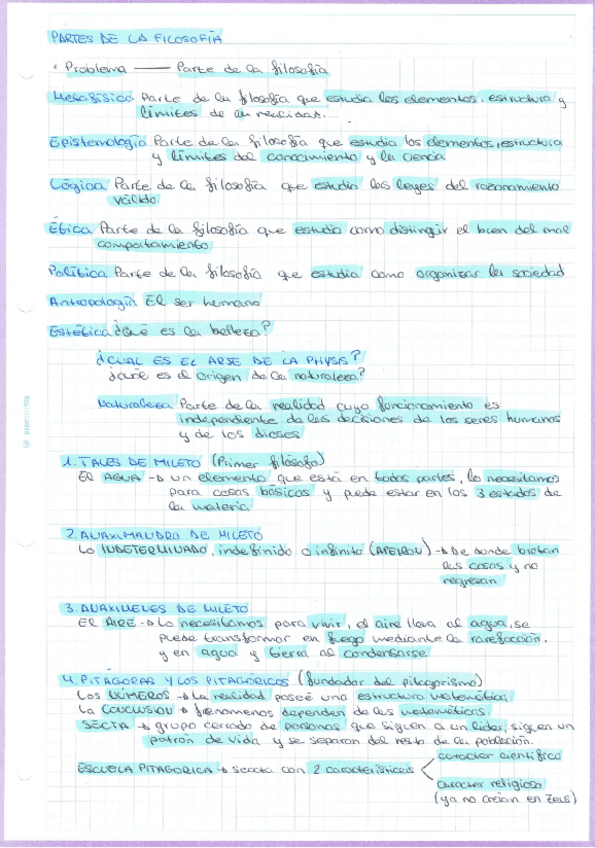 PARTES DE LA FILOSOFÍA
• Problema —— Parte de la filosofía
Metafísica Parte de la filosofía que estudia los elementos, estructura y
límites de la realidad.
Epistemología Parte de la filosofía que estudia los elementos, estructura
y límites del conocimiento y la ciencia
Lógica Parte de la filosofía que estudia las leyes del razonamiento
válido
Ética Parte de la filosofía que estudia como distinguir el bien del mal
comportamiento
Política Parte de la filosofía que estudia como organizar la sociedad
Antropología El ser humano
Estética ¿Qué es la belleza?
¿CUAL ES EL ARJE DE LA PHYSIS?
¿cuál es el origen de la naturaleza?
Naturaleza Parte de la realidad cuyo funcionamiento es
independiente de las decisiones de los seres humanos
y de los dioses
1. TALES DE MILETO (Primer filósofo)
El AGUA → un elemento que está en todas partes, lo necesitamos
para cosas básicas y puede estar en los 3 estados de
la materia.
2. ANAXIMANDRO DE MILETO
Lo INDETERMINADO, indefinido o infinito (APEIRON) → De donde brotan
las cosas y no
regresan
3. ANAXIMENES DE MILETO
El AIRE → Lo necesitamos para vivir, el aire lleva al agua, se
puede transformar en fuego mediante la rarefacción,
y en agua y tierra al condensarse
4. PITAGORAS Y LOS PITAGÓRICOS (fundador del pitagorismo)
Los NÚMEROS → La realidad poseé una estructura matemática.
La CONCLUSION → fenomenos dependen de las matemáticas.
SECTA → grupo cerrado de personas que siguen a un lider, siguen un
patrón de vida y se separan del resto de la población.
ESCUELA PITAGORICA → secta con 2 características
caracter científico
caracter religioso
(ya no creían en Zeus)